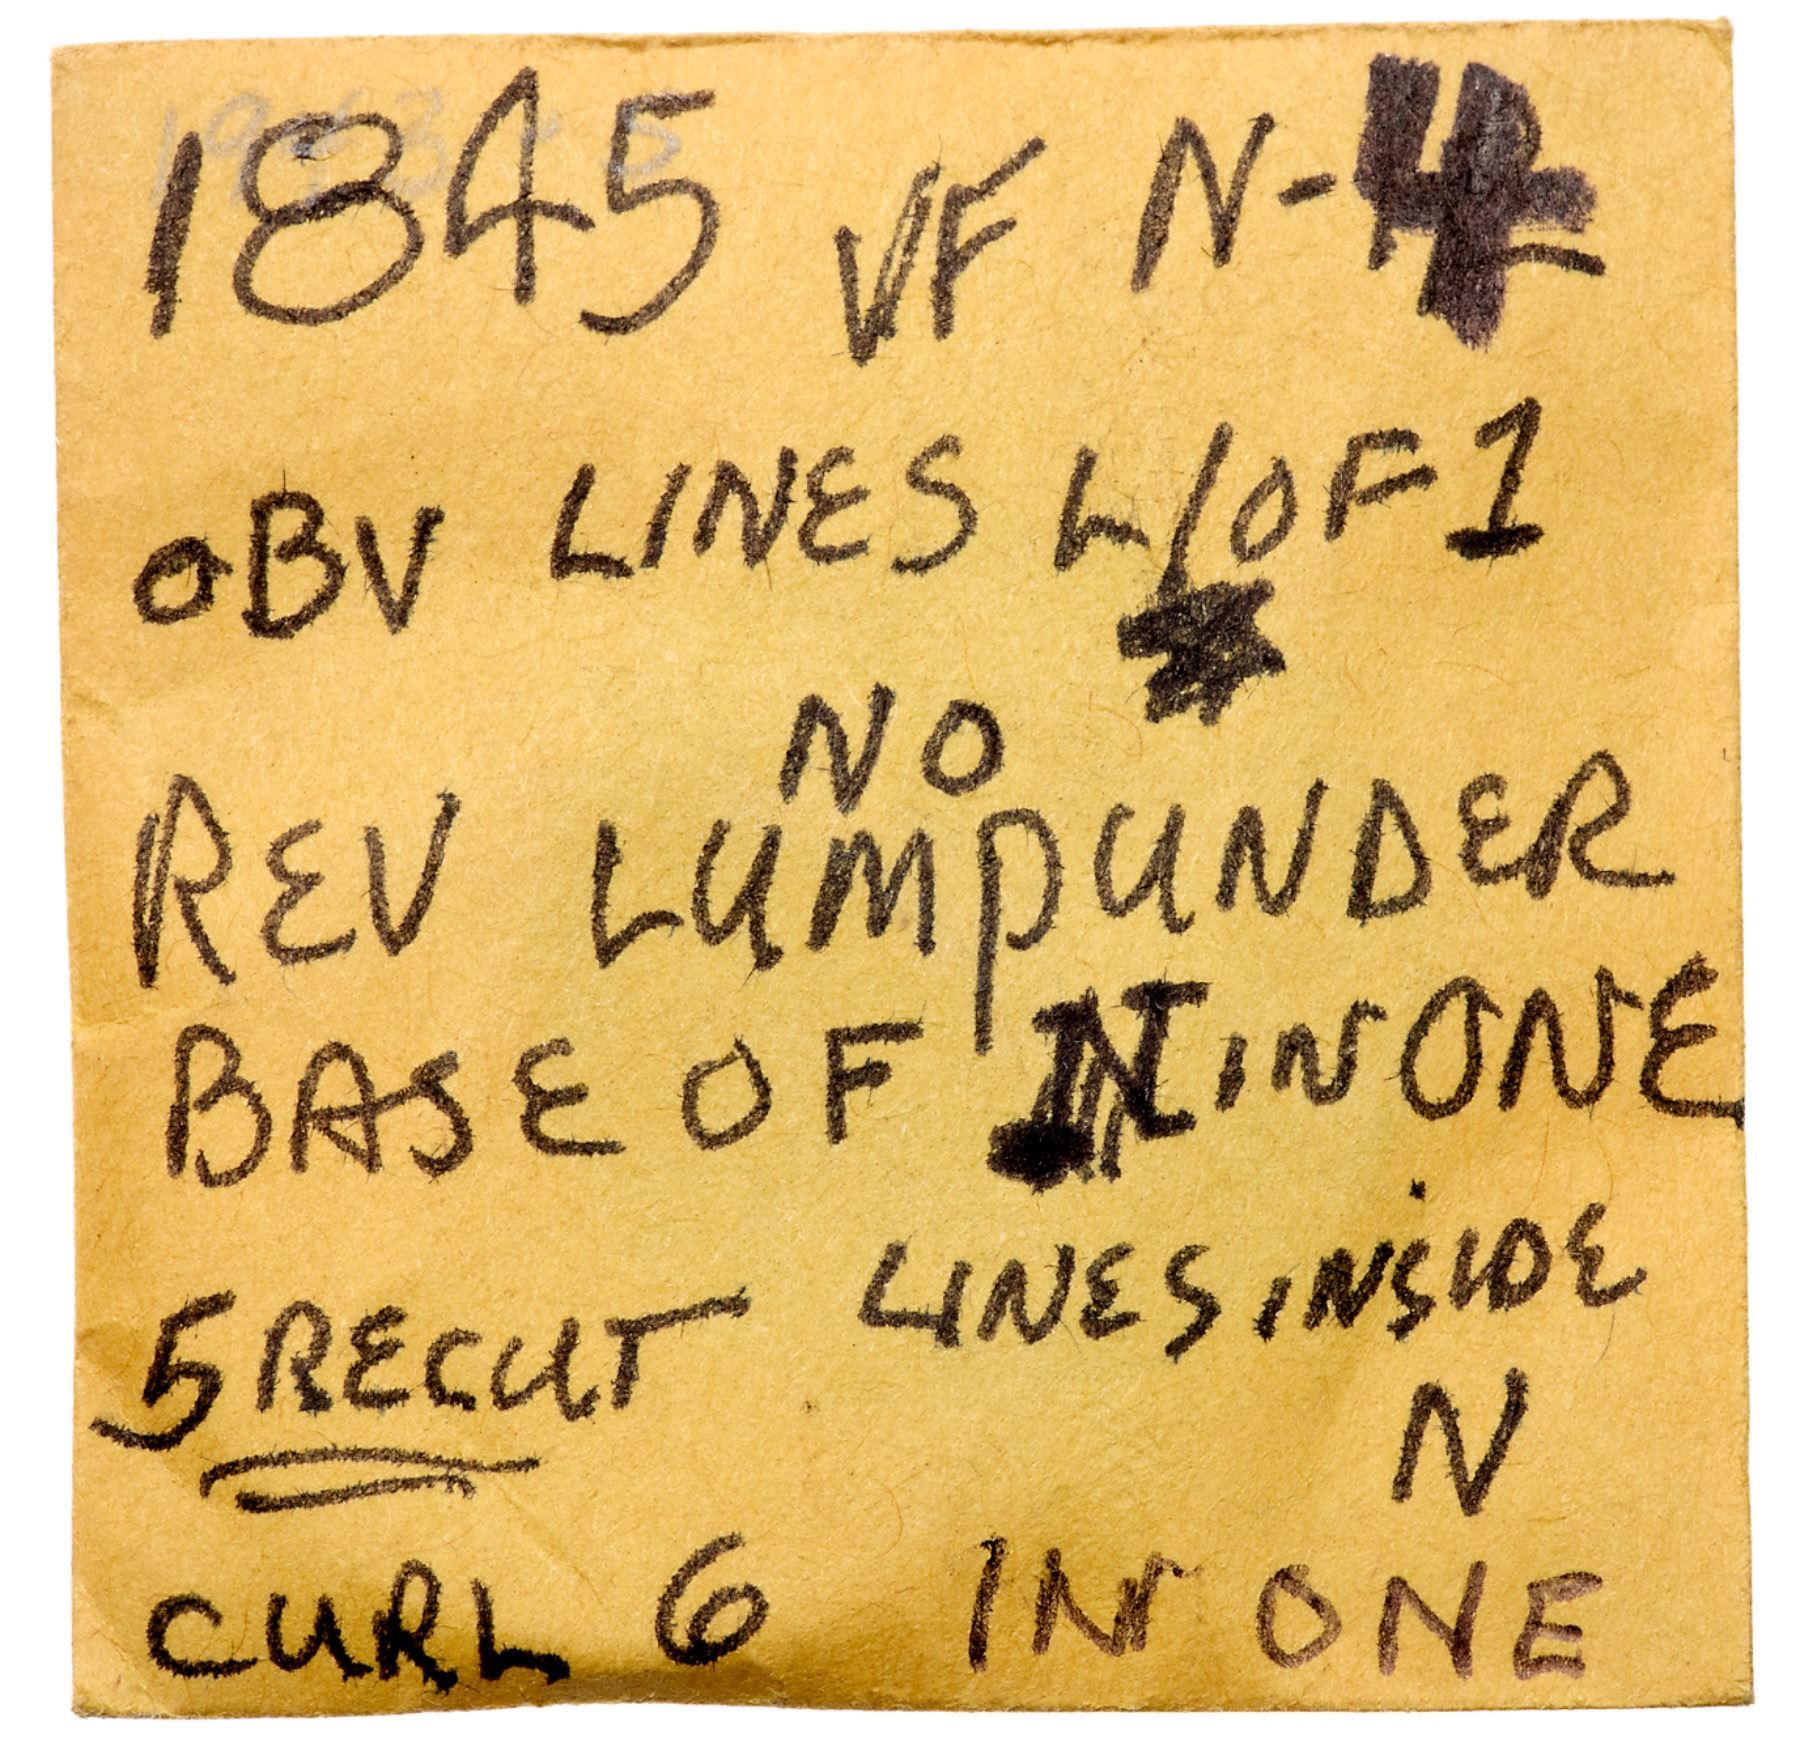 1845 VF N-4
OBV LINES L/OF 1
NO
REV LUMP UNDER
BASE OF N IN ONE
5 RECUT LINES INSIDE
N
CURL 6 IN ONE